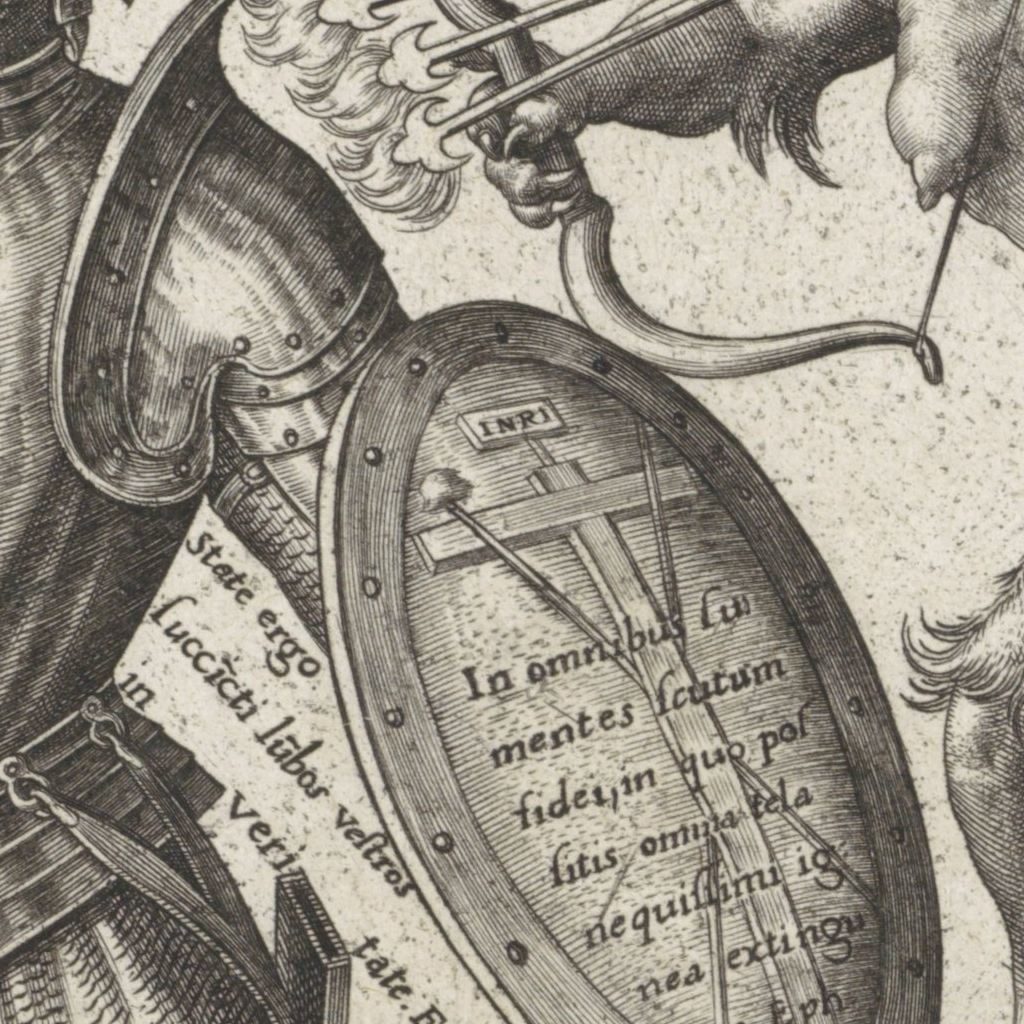 INRI
In omnibus ſu
mentes ſcutum
fidei, in quo poſ
ſitis omnia tela
nequiſſimi ig
nea extingu
Eph.
State ergo
ſuccīcti lūbos veſtros
in
veri
tate. E